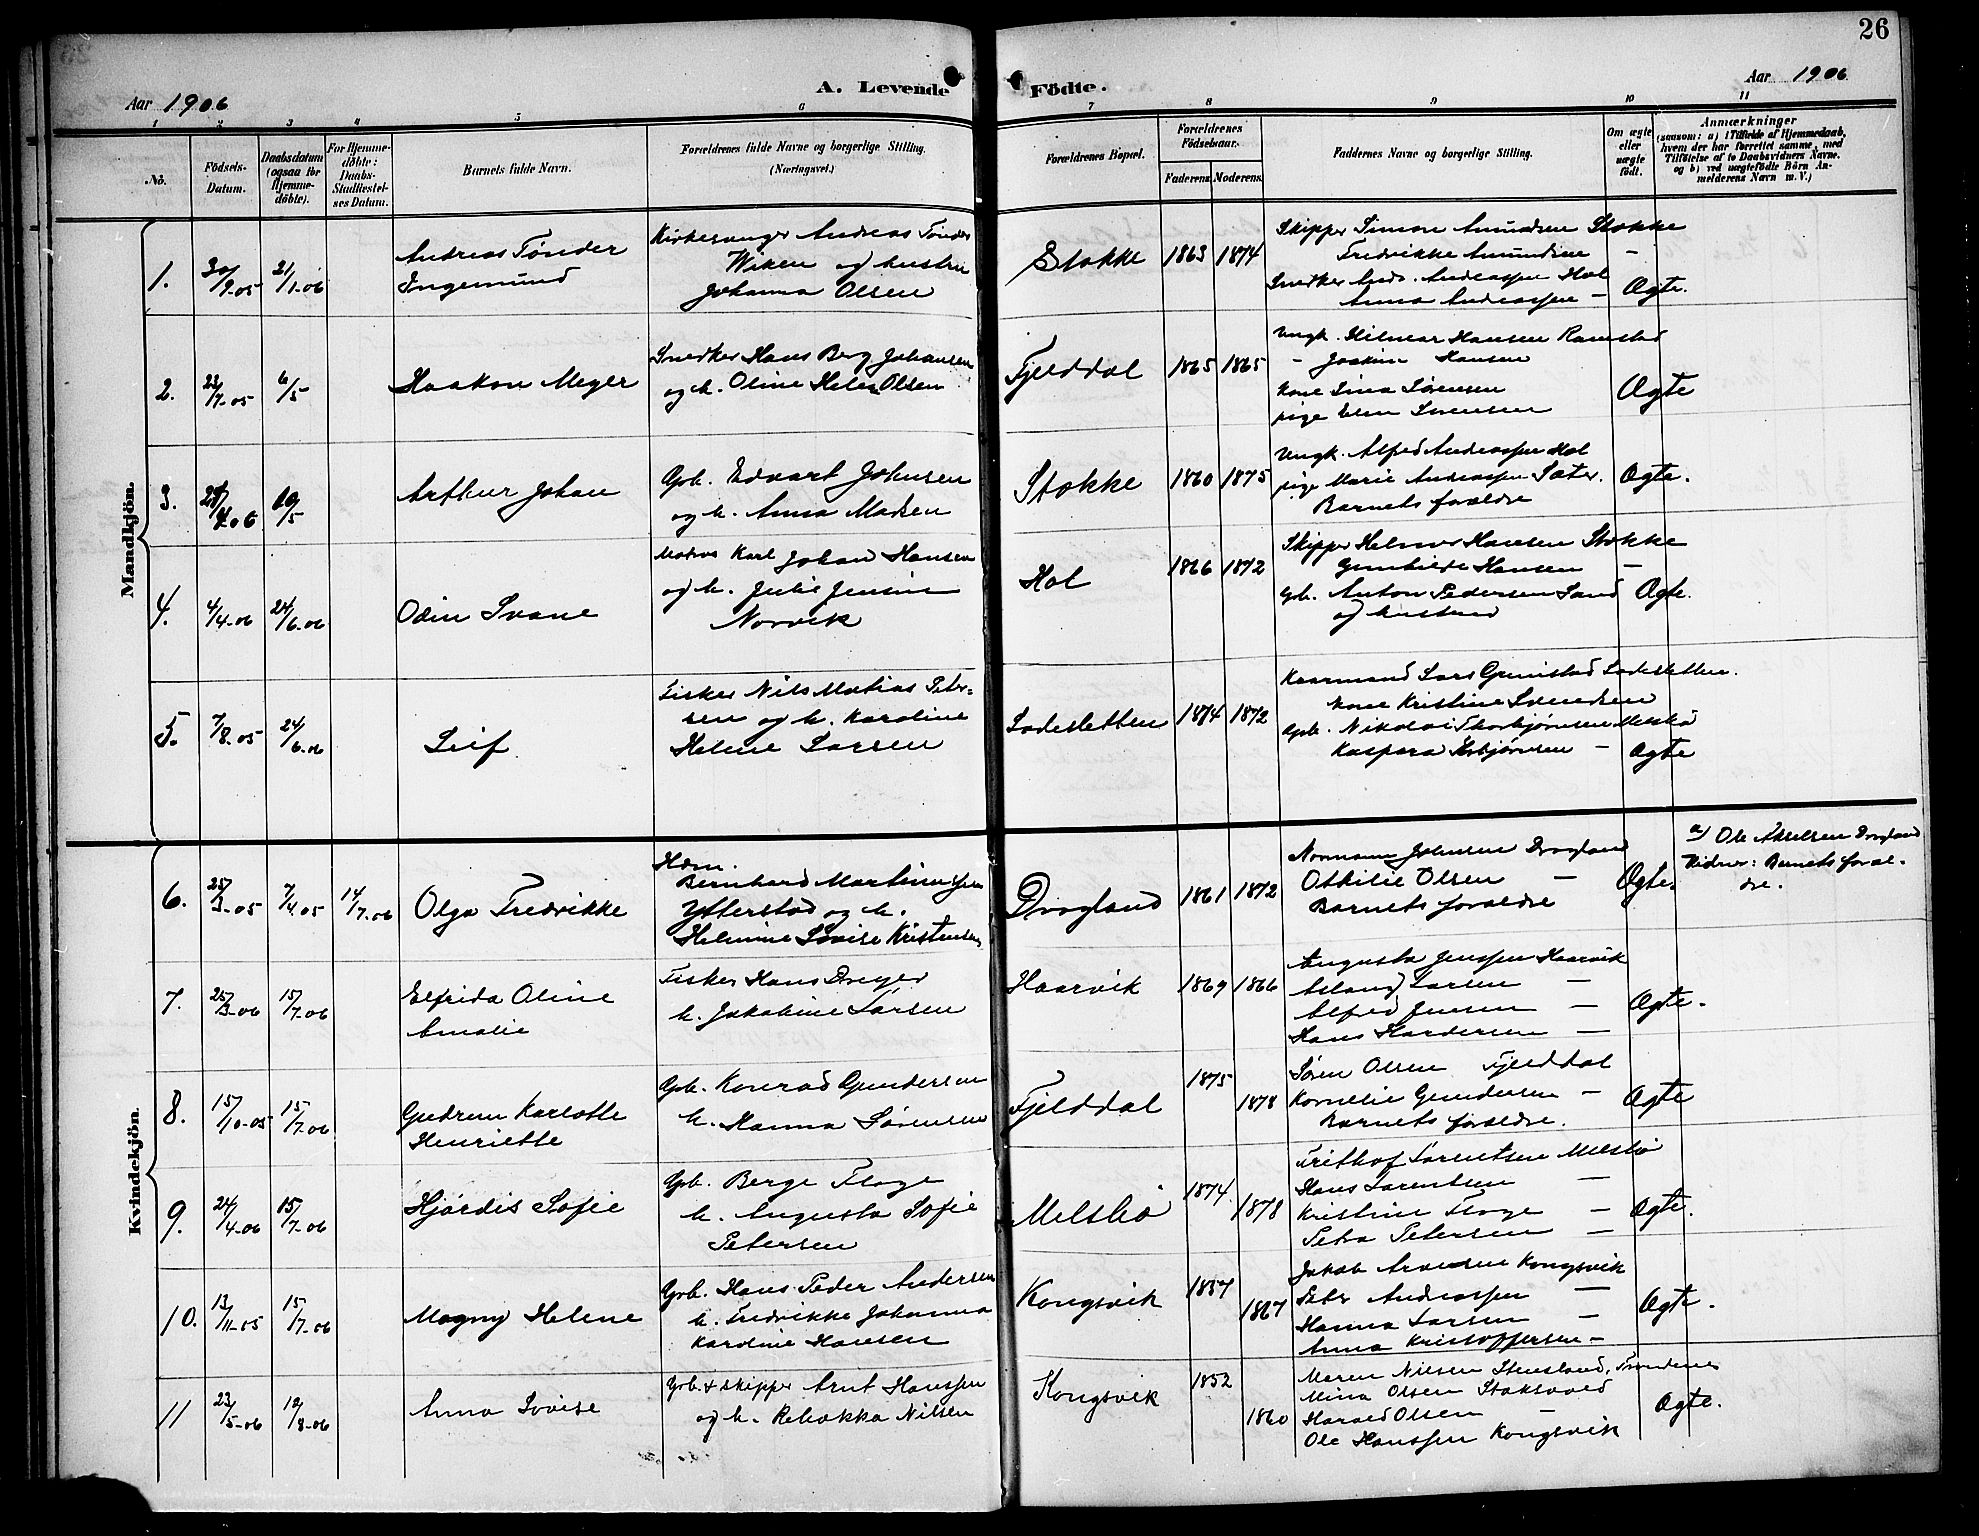 26
Aar 1906
A. Levende Födte.
Aar 1906
1 2 3 4 5 6 7 8 9 10 11
No.
Födsels-Datum.
Daabsdatum (ogsaa for Hjemme-döbte).
For Hjemme-döbte: Daabs-Stadfæstel-ses Datum.
Barnets fulde Navn.
Forældrenes fulde Navne og borgerlige Stilling. (Næringsvei.)
Forældrenes Bopæl.
Forældrenes Födselsaar.
Faderens Moderens
Faddernes Navne og borgerlige Stilling.
Om ægte eller uægte födt.
Anmærkninger
(saasom: a) i Tilfælde af Hjemmedaab,
hvem der har forrettet samme, med
Tilföielse af to Daabsvidners Navne.
og b) ved uægtefödte Börn An-
melderens Navn m. V.)
Mandkjön.
1. 30/9.05 21/1.06
Andreas Tønder
Ingemund
Kirkesanger Andreas Tønder
Wiken og hustru
Johanna Olsen
Stokke 1863 1874
Skipper Simon Amundsen Stokke
Fredrikke Amundsen –
Snedker Ands. Andreassen Hol
Anna Andreassen –
Ægte.
2. 22/7.05 6/5
Haakon Meyer
Snedker Hans Berg Johansen
og h. Oline Helene Olsen
Fjelddal 1865 1865
Ungk. Hilmar Hansen Ramstad
– Joakim Hansen
kone Lina Sørensen
pige Elen Sørensen
Ægte
3. 4.06 /5
Arthur Johan
Gbr. Edvart Johnsen
og h. Anna Madsen
Stokke 1860 1875
Ungk. Alfred Andreassen Hol
pige Marie Andreassen Sæter.
Barnets forældre
Ægte.
4. 4/4-06 24/6.06
Odin Svane
Karl Johan Hansen
og h. Julie Jensine
Norvik
Hol 1866 1872
Skipper Helmer Hansen Stokke
Gunhilde Hansen –
Gbr. Anton Pedersen Sand
og hustru
Ægte.
5. 7/8.05 24/6.06
Leif
Fisker Nils Matias Peter-
sen og h. Karoline
Helene Larsen
Sandsletten 1874 1872
Kaarmand Lars Grimstad Ladesletten.
kone Kristine Svendsen
Gbr. Nikolai Thorbjørnsen Melsbø
Kaspara Torbjørnsen –
Ægte
Kvindekjön.
6. 25/3-05 7/4.05 14/7.06
Olga Fredrikke
Hdm.
Bernhard Martinussen
Ytterstad og h.
Helmine Lovise Kristensen
Drogland 1861 1872
Normann Johnsen Drogland
Othilie Olsen –
Barnets forældre
Ægte.
a) Ole Akselsen Drogland
Vidner: Barnets foræl-
dre.
7. 25/3-06 15/7-06
Elfrida Oline
Amalie
Fisker Hans Dreyer
h. Jakobine Larsen
Haarvik 1869 1866
Augusta Jenssen Haarvik
Larsen –
Alfred Jensen –
Hans Hardersen –
Ægte.
8. 15/10-05 15/7-06
Gudrun Karlotte
Henriette
Gbr. Konrad Gundersen
h. Hanna Sørensen
Fjelddal 1875 1878
Søren Olsen Fjelddal
Kornelie Gundersen –
Barnets forældre.
Ægte
9. 24/4-06 15/7-06
Hjørdis Sofie
Gbr. Berge Floge
h. Augusta Sofie
Petersen
Melsbø 1874. 1878
Frithof Lorentsen Melsbø
Hans Lorentsen –
Kristine Floge –
Petra Petersen –
Ægte.
10. 13/11-05 15/7-06
Magny Helene
Gbr. Hans Peder Andersen
h. Fredrikke Johanna
Karoline Hansen
Kongsvik 1857 1867
Jakob Arnesen Kongsvik
Peter Andreassen –
Hanna Larsen –
Anna Kristoffersen –
Ægte.
11 23/5-06 12/8-06
Anna Lovise
Gbr. + skipper Arnt Hanssen
og h. Rebekka Nilsen
Kongsvik 1852 1860
Maren Nilsen Stensland, Trondenes
Mina Olsen Staksvold
Harald Olsen –
Ole Hanssen Kongsvik
Ægte.